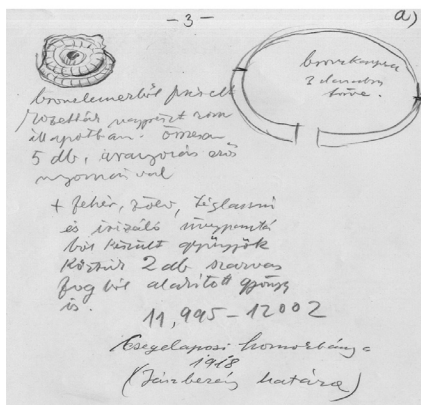 -3-
a)
bronzkarperec
3 darabra
törve.
bronzlemezből préselt
rozetták nagyrészt rom
állapotban. Összesen
5 db, aranyozás erős
nyomaival
+ fehér, zöld, téglaszínű
és irizáló üvegpasztá
ból készült gyöngyök
köztük 2 db szarvas
fogból alakított gyöngy
is.
11,995-12002
Csegelaposi homokbánya
1918
(Jászberény határa)